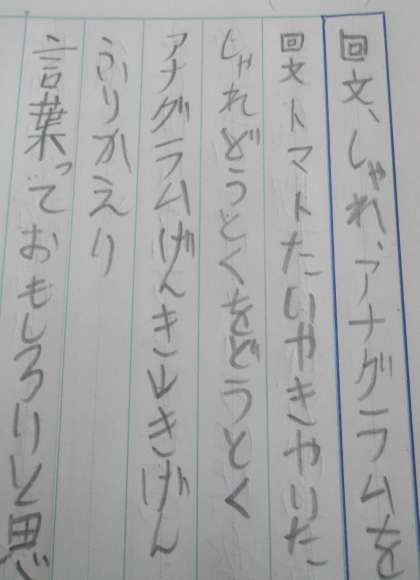 回文、しゃれ、アナグラムを
回文トマトたいやきやいた
しゃれどうとくをどうとく
アナグラムげんき→きげん
ふりかえり
言葉っておもしろいと思